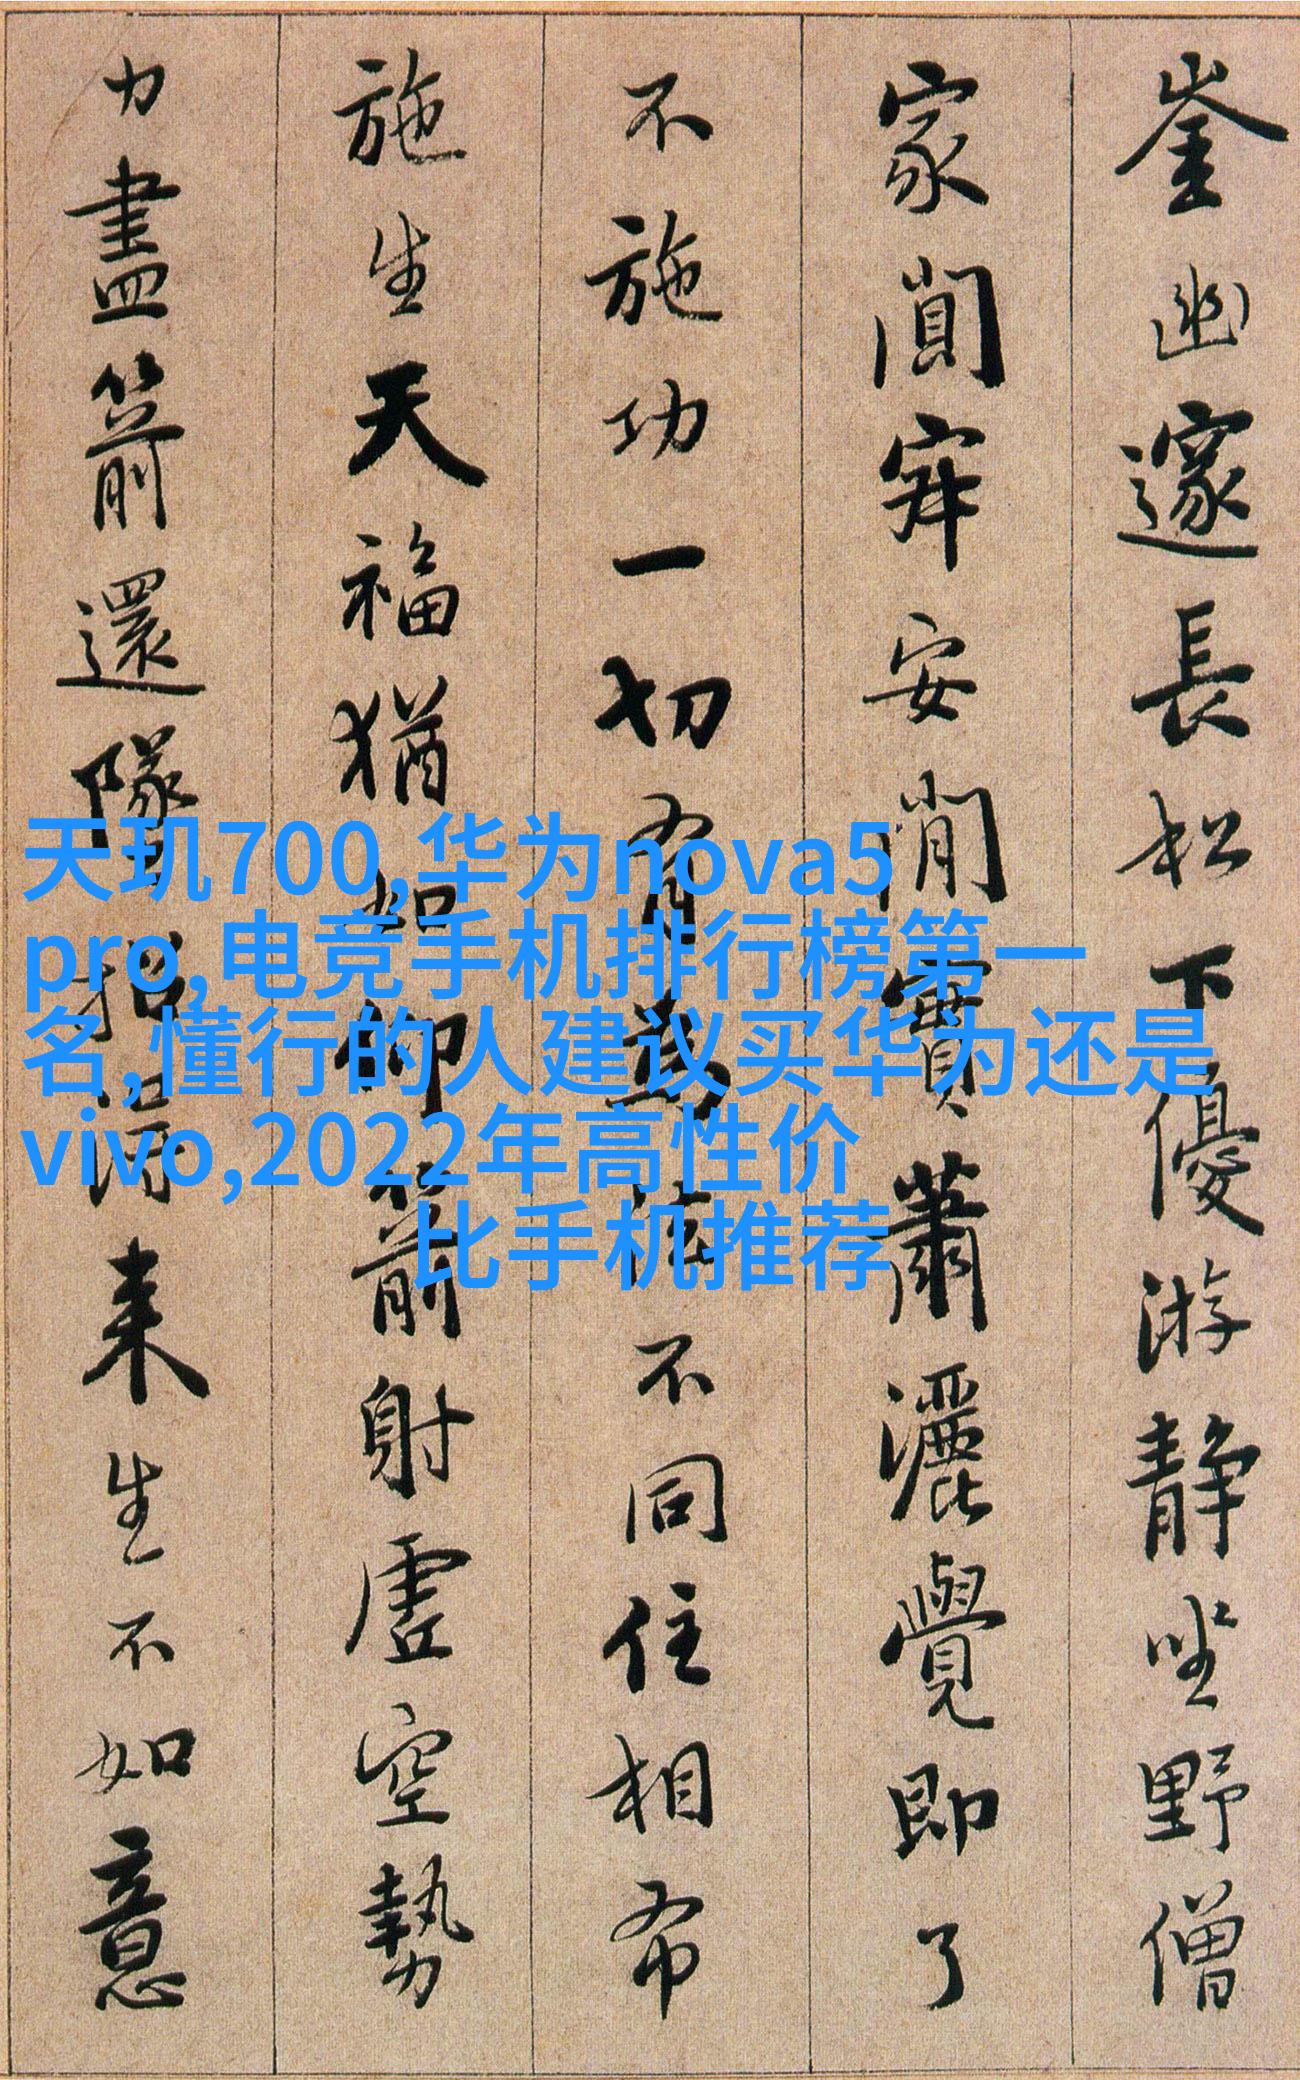 崟幽邃長松下優游靜坐野僧
家闃寂安閑實蕭灑覺即了
不施功一切有為法不同住相布
施生天福猶如仰箭射虛空勢
力盡箭還墜招得来生不如意
天玑700,华为nova5
pro,电竞手机排行榜第一
名,懂行的人建议买华为还是
vivo,2022年高性价
比手机推荐